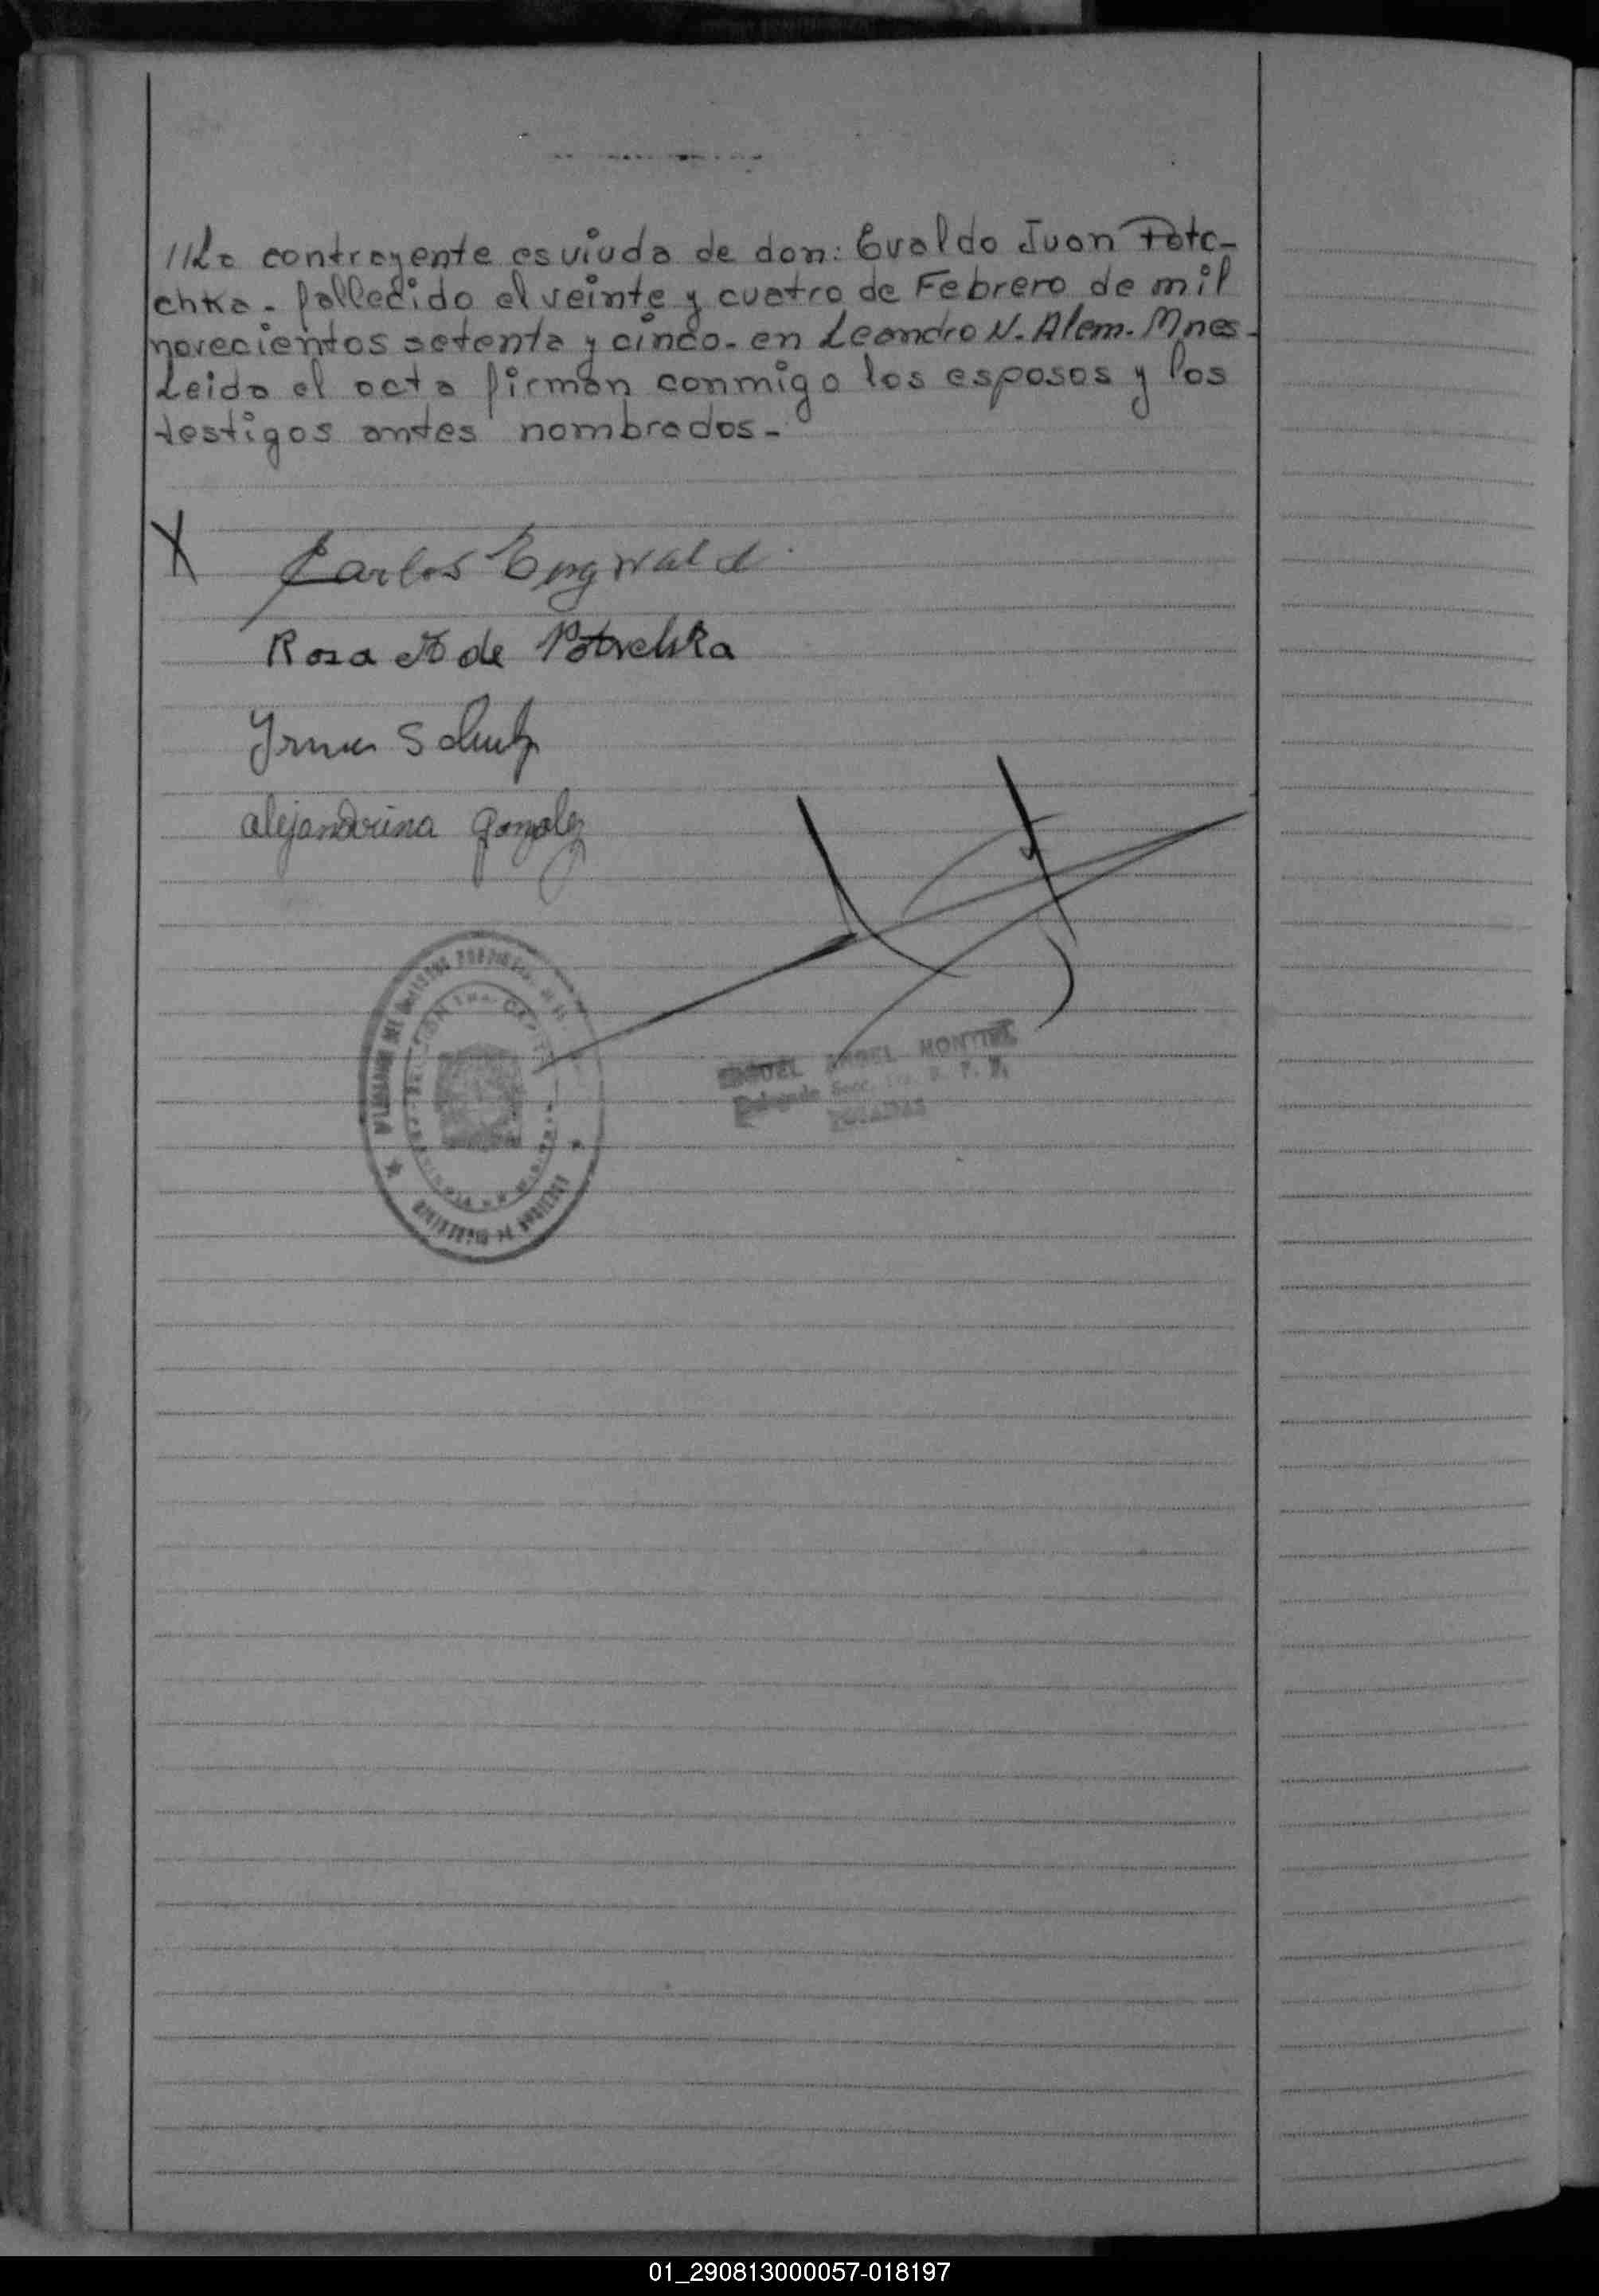 //La contrayente es viuda de don: Evaldo Juan Potc-
chka. fallecido el veinte y cuatro de Febrero de mil
novecientos setenta y cinco. en Leandro N. Alem. Mnes.
Leida el acta firman conmigo los esposos y los
testigos antes nombrados.-
X Carlos Engwald
Rosa de Potschka
Irma Schulz
alejandrina gonzalez
MIGUEL ANGEL MONTIEL
Delegado Secc. 1ra. R. P. P.
POSADAS
01_290813000057-018197